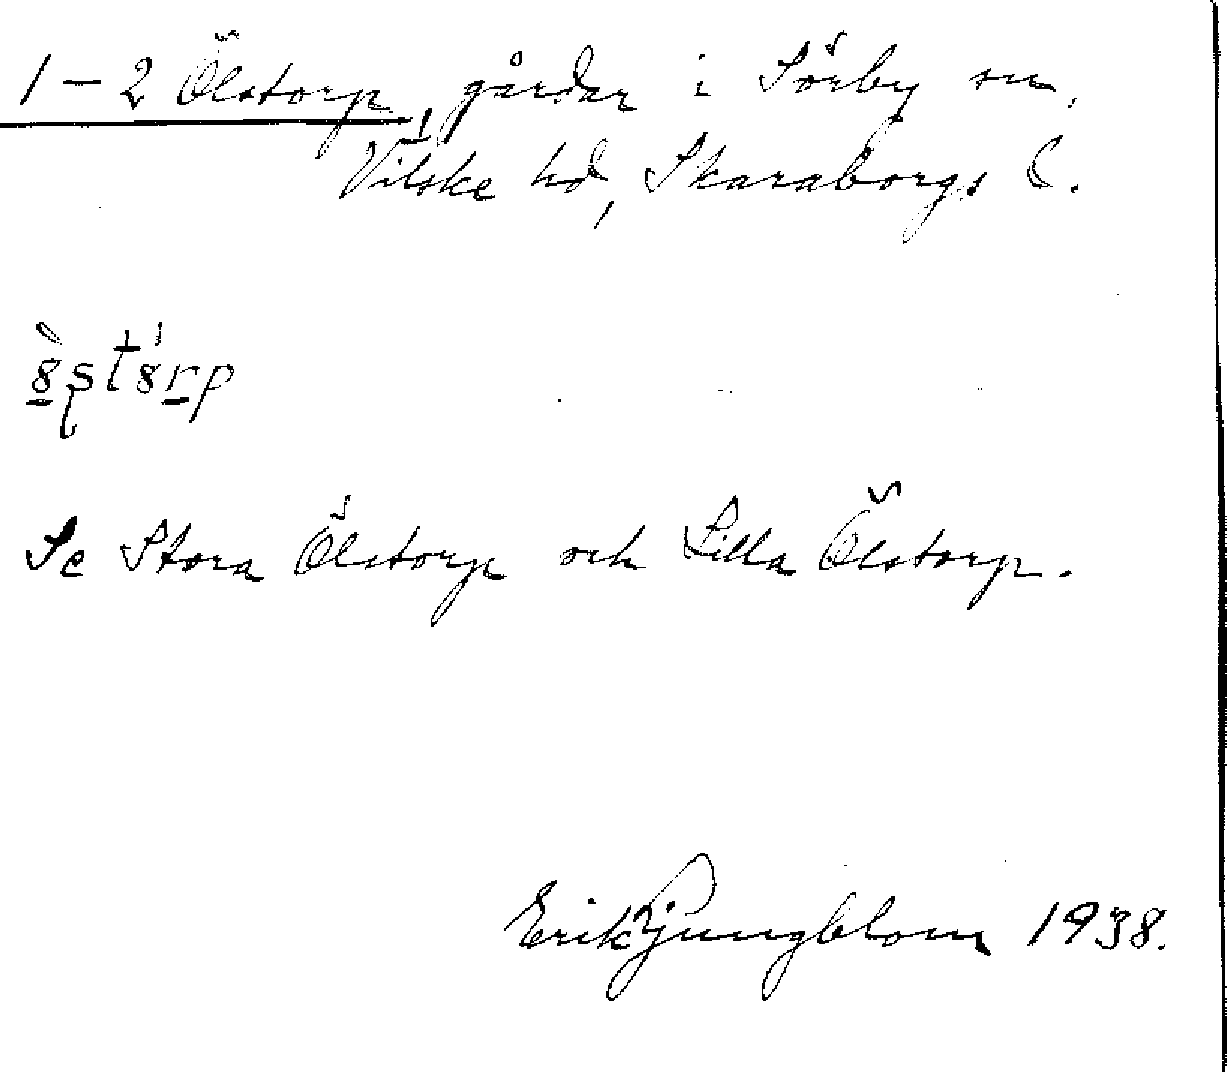 1-2 Ölstorp, gårdar i Sörby sn,
Vilske hd, Skaraborgs l.
Se Stora Ölstorp och Lilla Ölstorp.
Erik Ljungblom 1938.